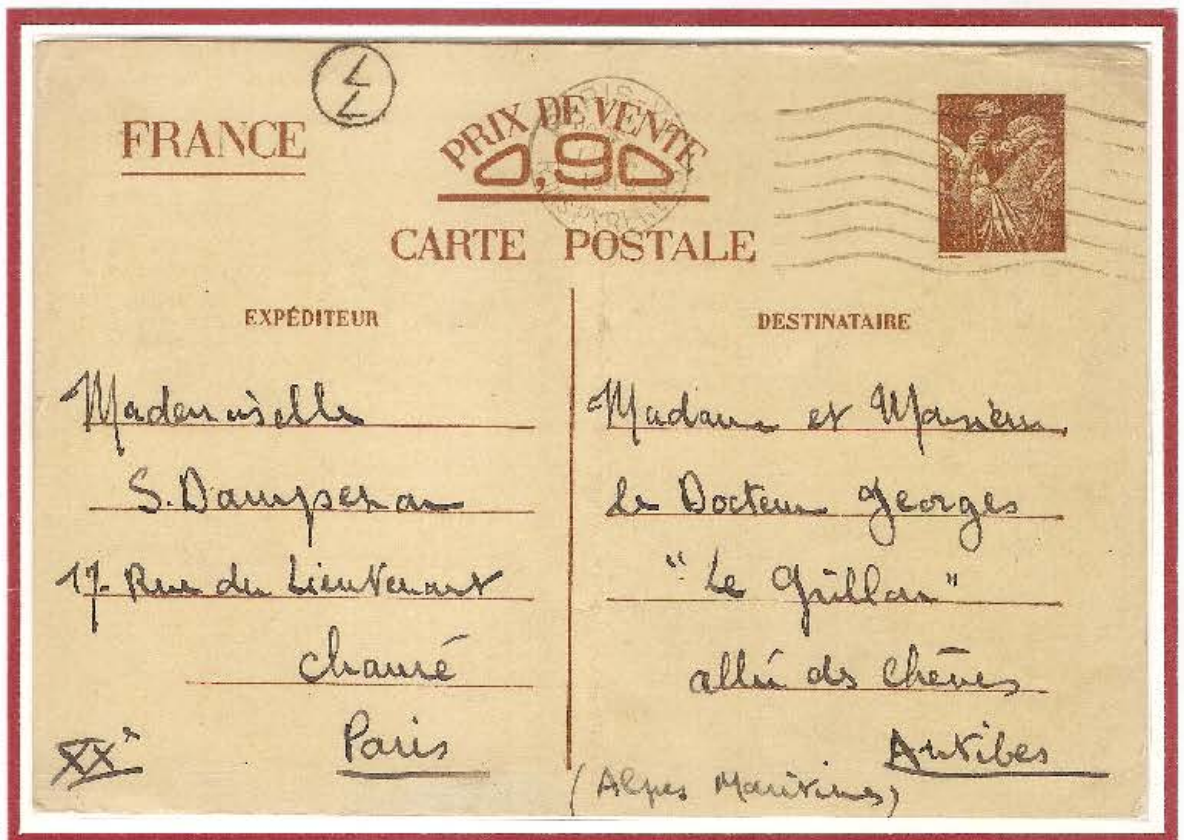 FRANCE
PRIX DE VENTE
0,90
CARTE POSTALE
EXPÉDITEUR
Mademoiselle
S.
17- Rue du Lieutenant
Chauré
XXè Paris
DESTINATAIRE
Madame et Monsieur
le Docteur Georges
"Le Grillon"
allée des Chênes
Antibes
(Alpes Maritimes)